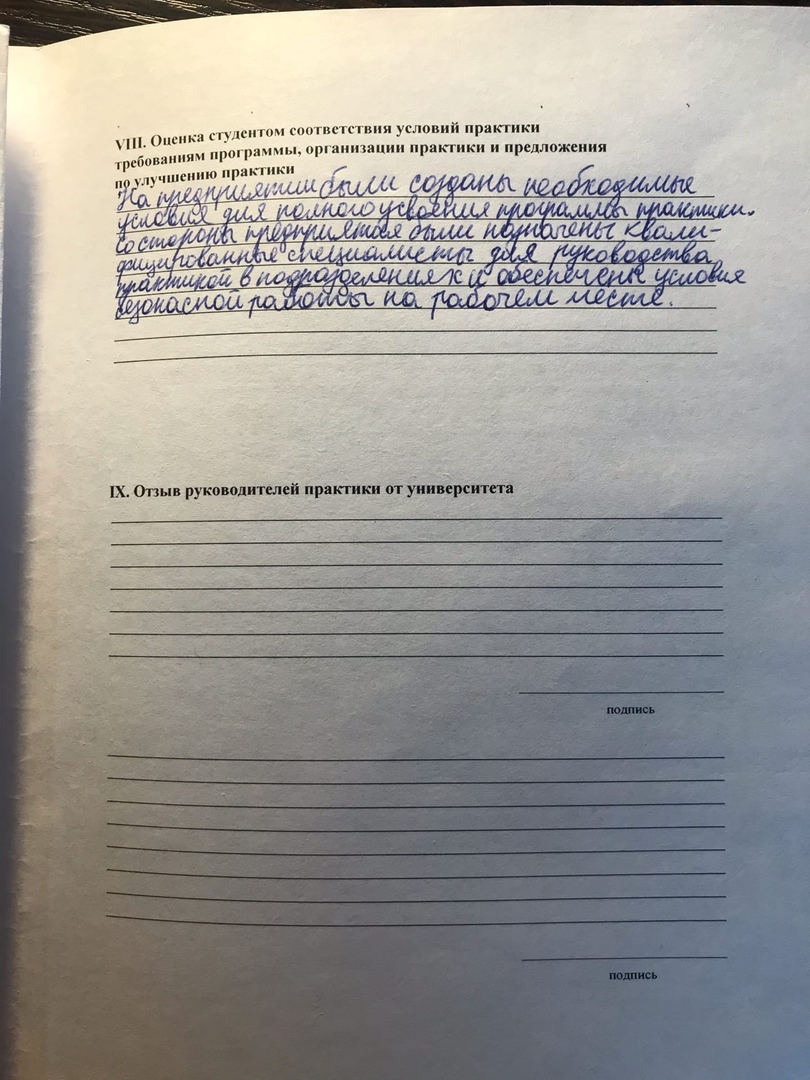 VIII. Оценка студентом соответствия условий практики
требованиям программы, организации практики и предложения
по улучшению практики
На предприятии были созданы необходимые
условия для полного усвоения программы практики.
Со стороны предприятия были назначены квали-
фицированные специалисты для руководства
практикой в подразделениях и обеспечены условия
безопасной работы на рабочем месте.
IX. Отзыв руководителей практики от университета
подпись
подпись